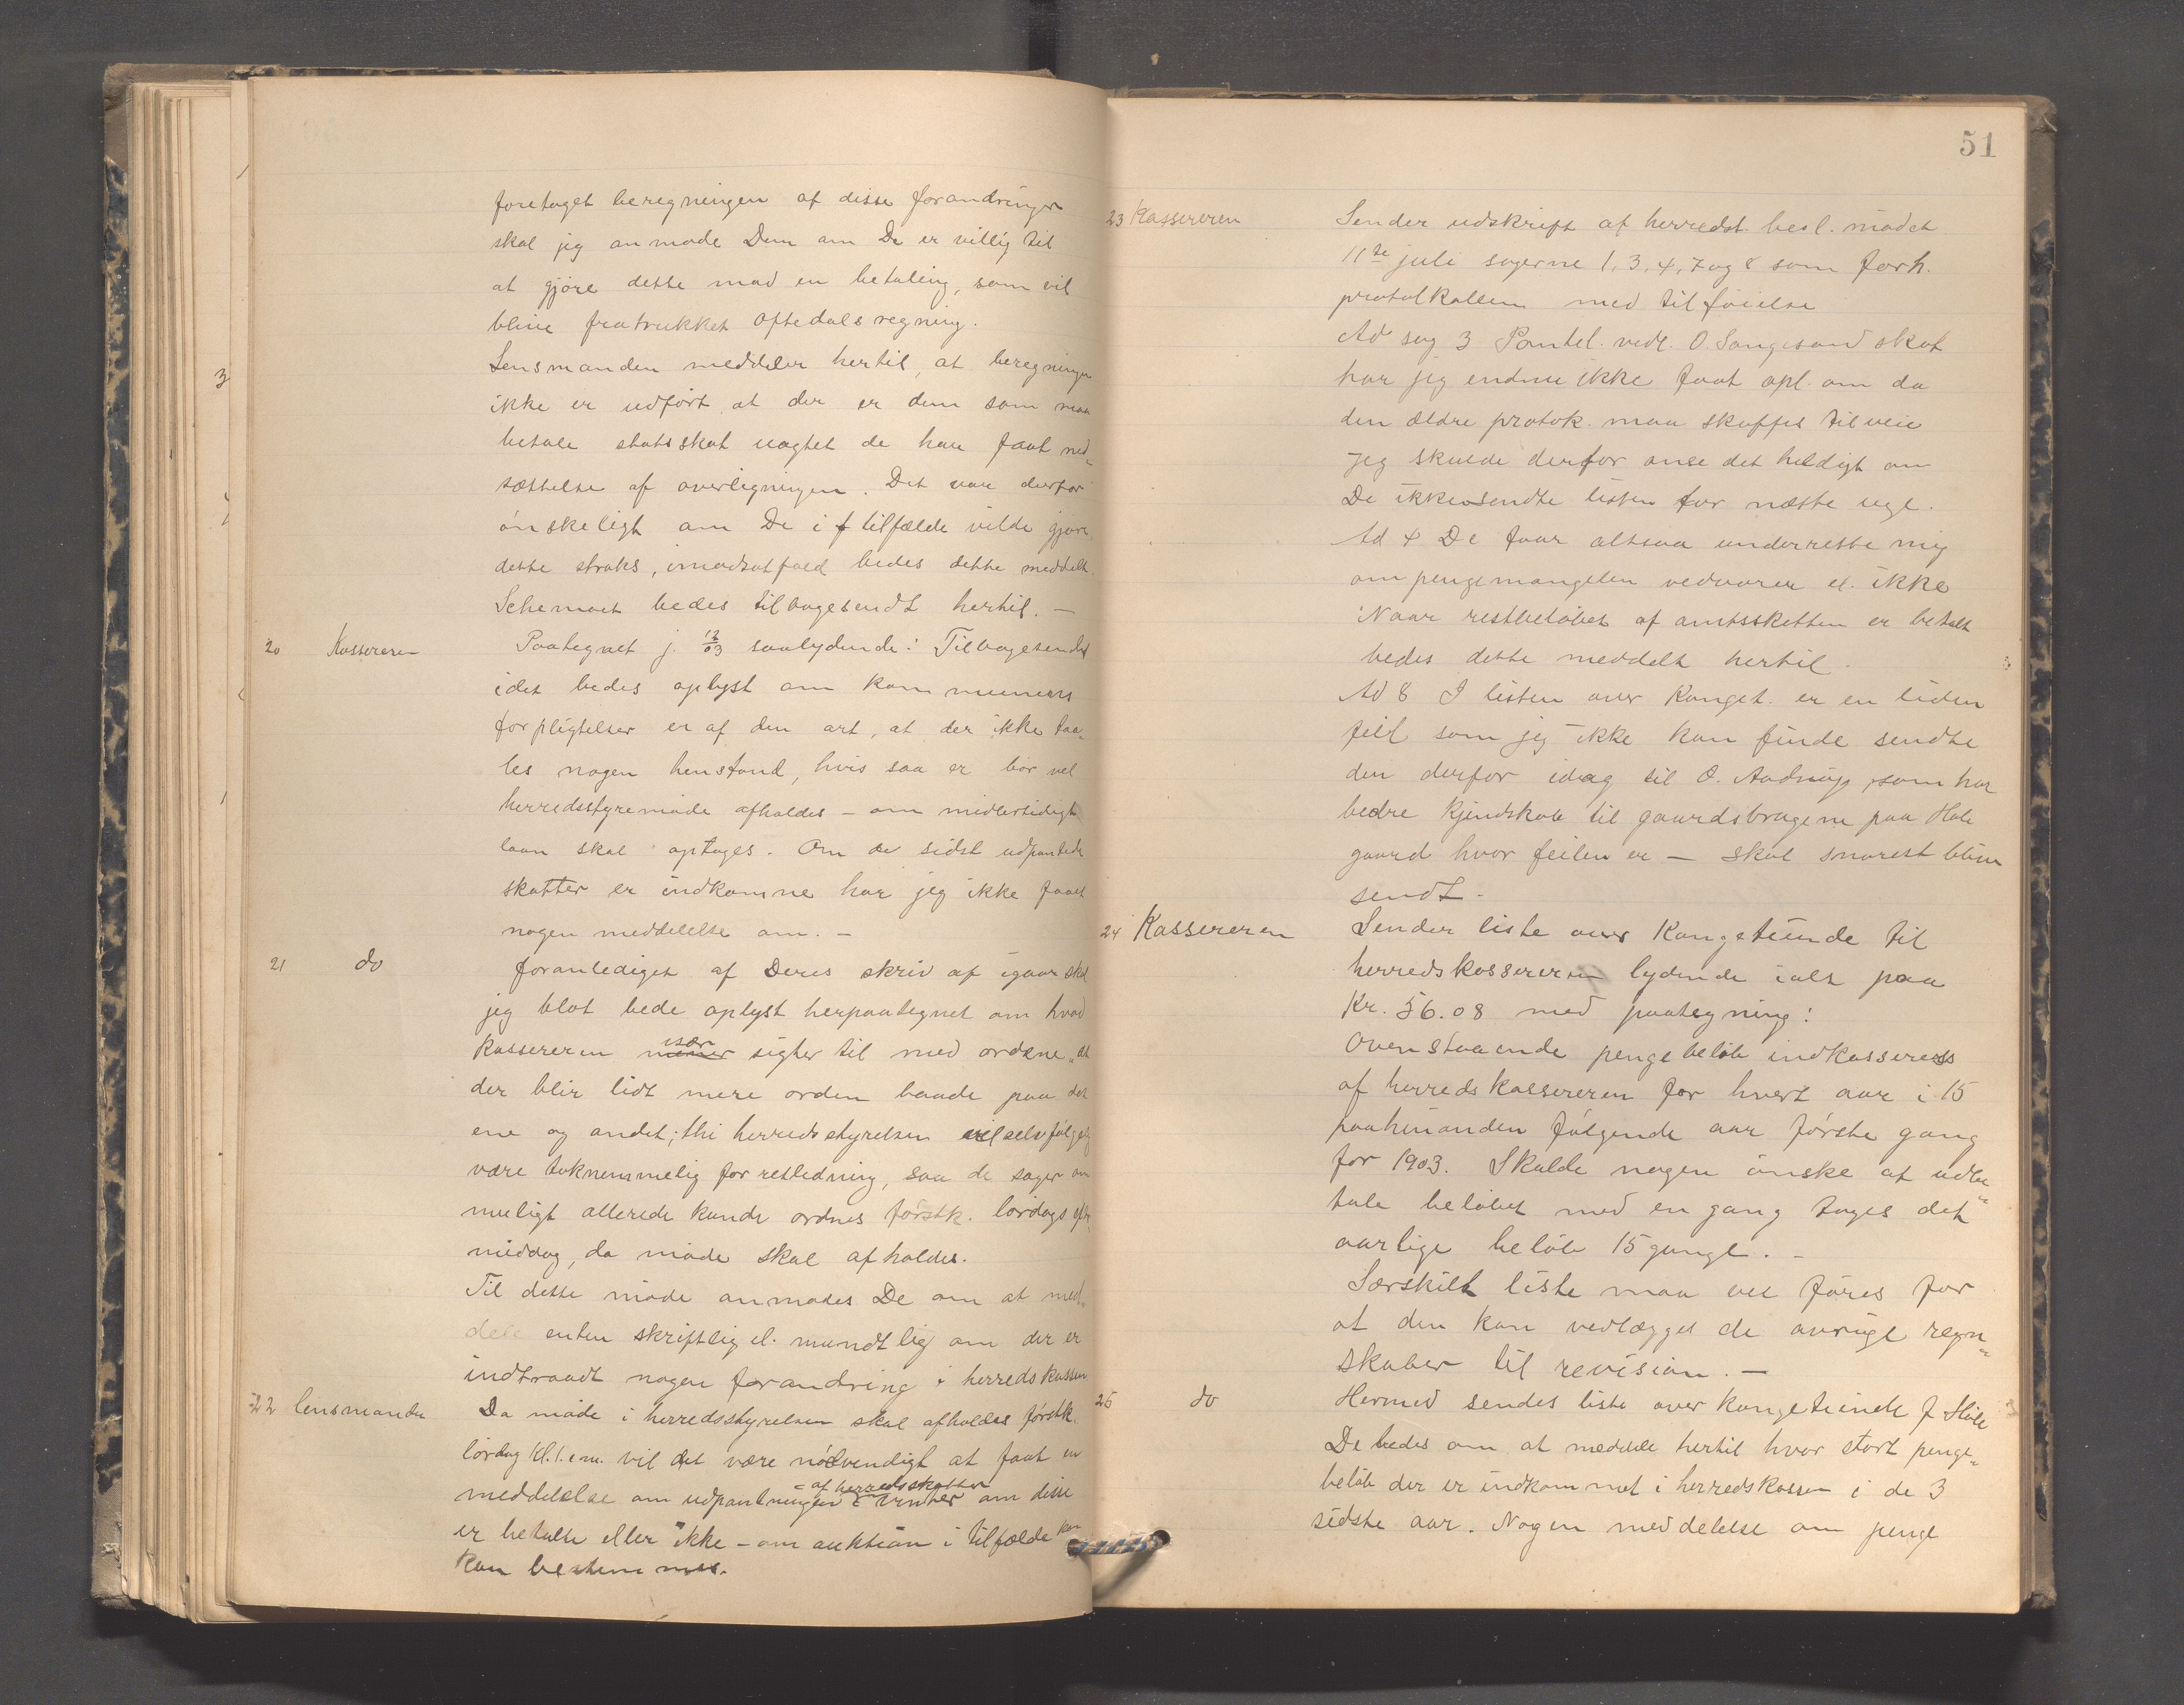 foretaget beregningen af disse forandringer
skal jeg anmode Dem om De er villig til
at gjøre dette mod en betaling, som vil
blive fratrukket Oftedals regning.
Lensmanden meddeler hertil, at beregningen
ikke er udført, at der er dem som maa
betale statsskat uagtet de har faat ned„
sættelse af overligningen. Det var derfor
ønskeligt om De i f tilfælde vilde gjøre
dette straks, imodsatfald bedes dette meddelt.
Schemaet bedes tilbagesendt hertil. —
20 Kassereren Paategnet j. 12/03 saalydende: Tilbagesendes
idet bedes oplyst om kommunens
forpligtelser er af den art, at der ikke taa„
les nogen henstand, hvis saa er bør vel
herredsstyremøde afholdes – om midlertidigt
laan skal optages. Om de sidst udpantede
skatter er indkomne har jeg ikke faaet
nogen meddelelse om. —
21 do Foranlediget af Deres skriv af igaar skal
jeg blot bede oplyst herpaategnet om hvad
kassereren mener især sigter til med ordene „at
der blir lidt mere orden baade paa det
ene og andet; thi herredsstyrelsen vil selvfølgelig
være taknemmelig for retledning, saa de sager om
muligt allerede kunde ordnes førstk. lørdags efter
middag, da møde skal afholdes.
Til dette møde anmodes De om at med„
dele enten skriftlig el. mundtlig om der er
indtraadt nogen forandring i herredskassen
22 lensmanden Da møde i herredsstyrelsen skal afholdes førstk.
lørdag kl. 1. em. vil det være nødvendigt at faat en
meddelelse om udpantningen – af herredsskatten i vinter om disse
er betalte eller ikke – om auktion i tilfælde kan
kan bestemmes.
51
23 Kassereren Sender udskrift af herredst. besl. mødet
11te juli sagerne 1, 3, 4, 7 og 8 som forh.
protokollen med tilføielse
Ad sag 3 Pantel. vedr. O. Sangesand skat
har jeg endnu ikke faat opl. om da
den ældre protok. maa skaffes tilveie
jeg skulde derfor anse det heldigt om
De ikke sendte listen før næste uge.
Ad 4 De faar altsaa underrette mig
om pengemangelen vedvarer el. ikke
Naar restbeløbet af amtsskatten er betalt
bedes dette meddelt hertil.
Ad 8 I listen over Konget. er en liden
feil som jeg ikke kan finde sendte
den derfor idag til O. Aadnøy, som har
bedre kjendskab til gaardsbrugene paa Hole
gaard hvor feilen er — skal snarest blive
sendt.
24 Kassereren Sender liste over Kongetiende til
herredskassereren lydende ialt paa
Kr. 56.08 med paategning:
Ovenstaaende pengebeløb indkasseres
af herredskassereren for hvert aar i 15
paahinanden følgende aar første gang
for 1903. Skulde nogen ønske at udbe„
tale beløbet med en gang tages det
aarlige beløb 15 gange. –
Særskilt liste maa vel føres for
at den kan vedlægges de øvrige regn„
skaber til revision. —
25 do Hermed sendes liste over kongetiende f Hole
De bedes om at meddele hertil hvor stort penge„
beløb der er indkommet i herredskassen i de 3
sidste aar. Nogen meddelelse om penge